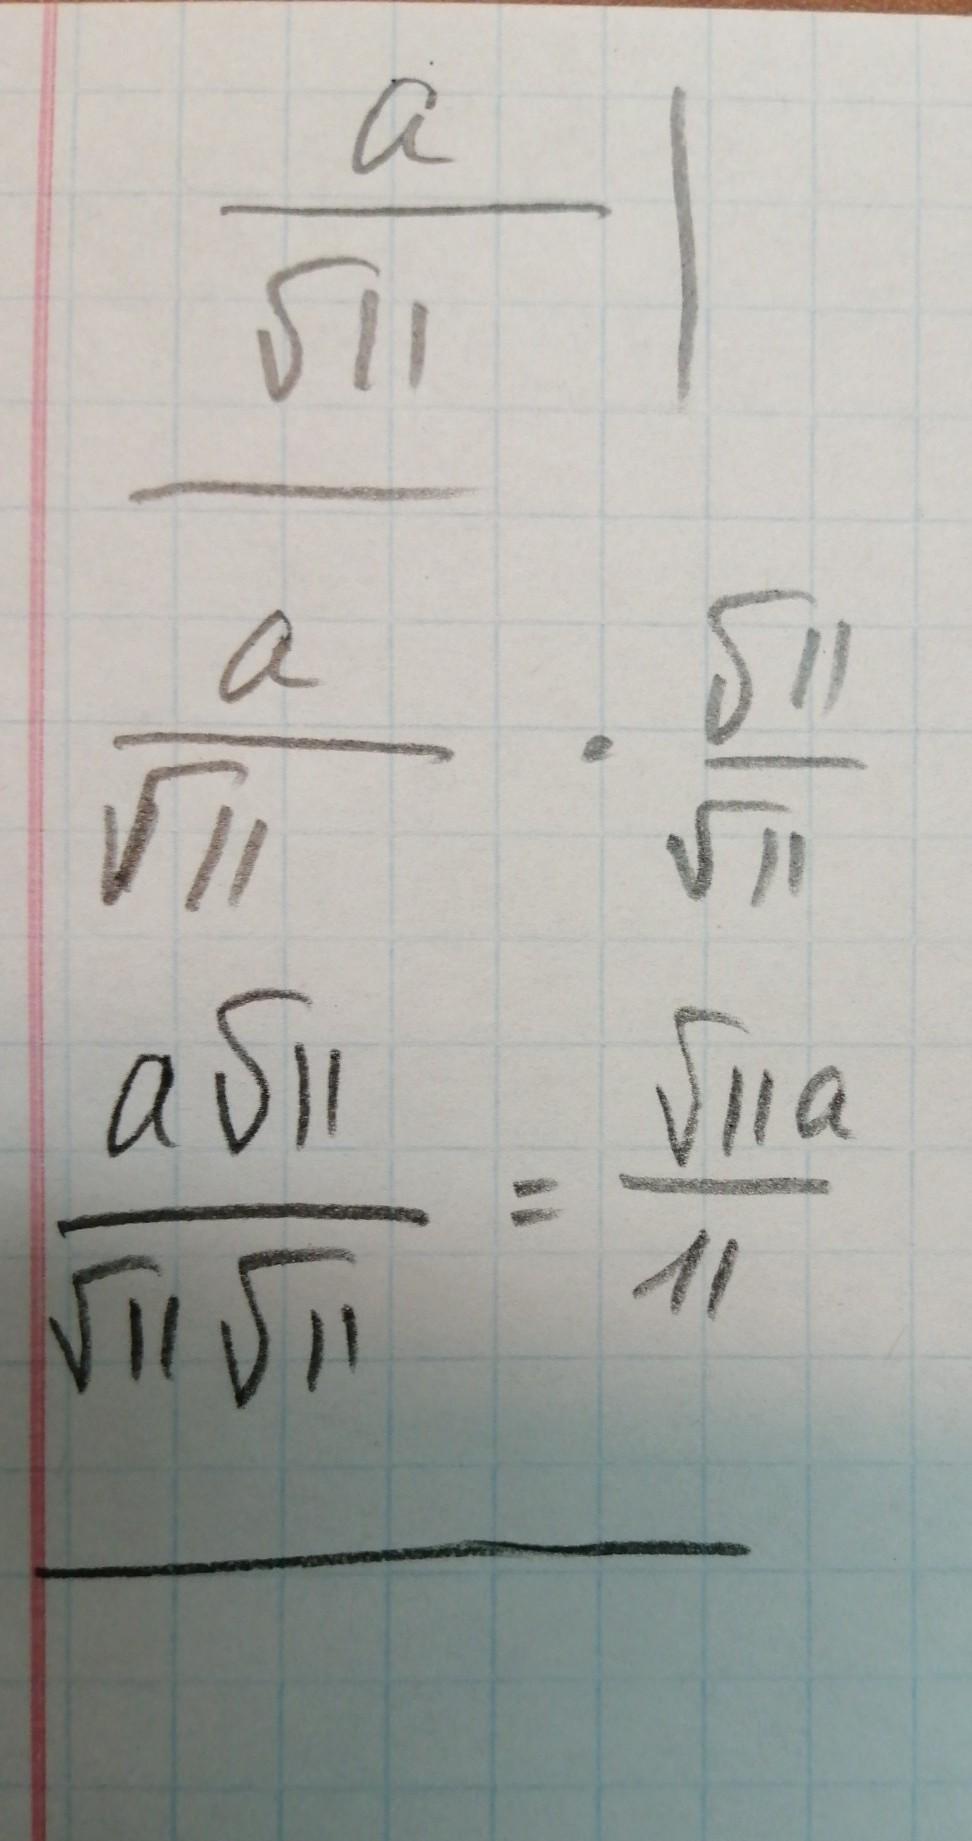 a
√11
a · √11
√11 √11
a√11 = √11a
√11 √11 11